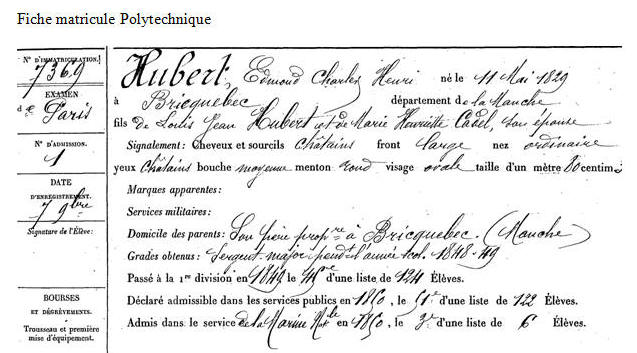 Fiche matricule Polytechnique
N° D'IMMATRICULATION.
7369
EXAMEN
de Paris
N° D'ADMISSION.
1
DATE
D'ENREGISTREMENT.
7 9bre
Signature de l'Élève:
BOURSES
ET DÉGRÈVEMENTS.
Trousseau et première
mise d'équipement.
Hubert, Edmond Charles Henri né le 11 Mai 1829
à Bricquebec département de la Manche
fils de Louis Jean Hubert et de Marie Henriette Cadel, son épouse
Signalement: Cheveux et sourcils châtains front large nez ordinaire
yeux châtains bouche moyenne menton rond visage ovale taille d'un mètre 80 centim.
Marques apparentes:
Services militaires:
Domicile des parents: Son père propre à Bricquebec. (Manche)
Grades obtenus: Sergent major pendt l'année scol. 1848-49
Passé à la 1re division en 1849 le d'une liste de 124 Élèves.
Déclaré admissible dans les services publics en 1850, le 51e d'une liste de 122 Élèves.
Admis dans le service de la Marine en 1850, le 3e d'une liste de 6 Élèves.